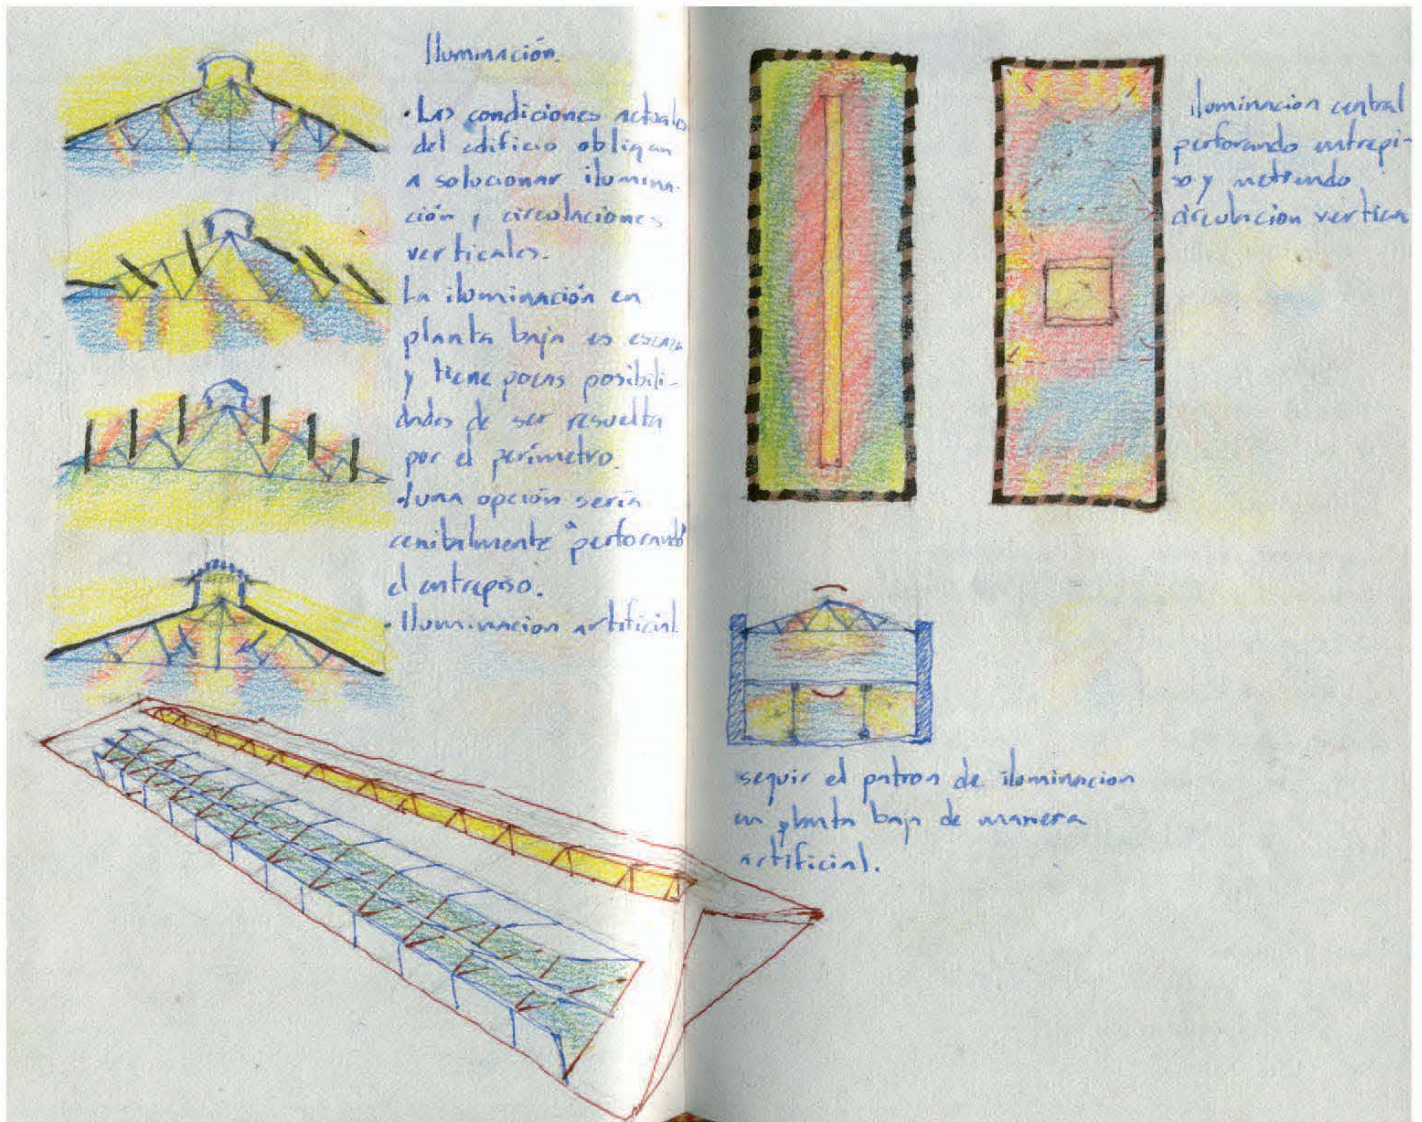 Iluminación.
• Las condiciones actuales
del edificio obligan
a solucionar ilumina-
ción y circulaciones
verticales.
La iluminación en
planta baja es escaza
y tiene pocas posibili-
dades de ser resuelta
por el perímetro.
• una opción sería
cenitalmente "perforando"
el entrepiso.
• Iluminacion artificial
iluminacion central
perforando entrepi-
so y metiendo
circulacion vertical
seguir el patron de iluminacion
en planta baja de manera
artificial.